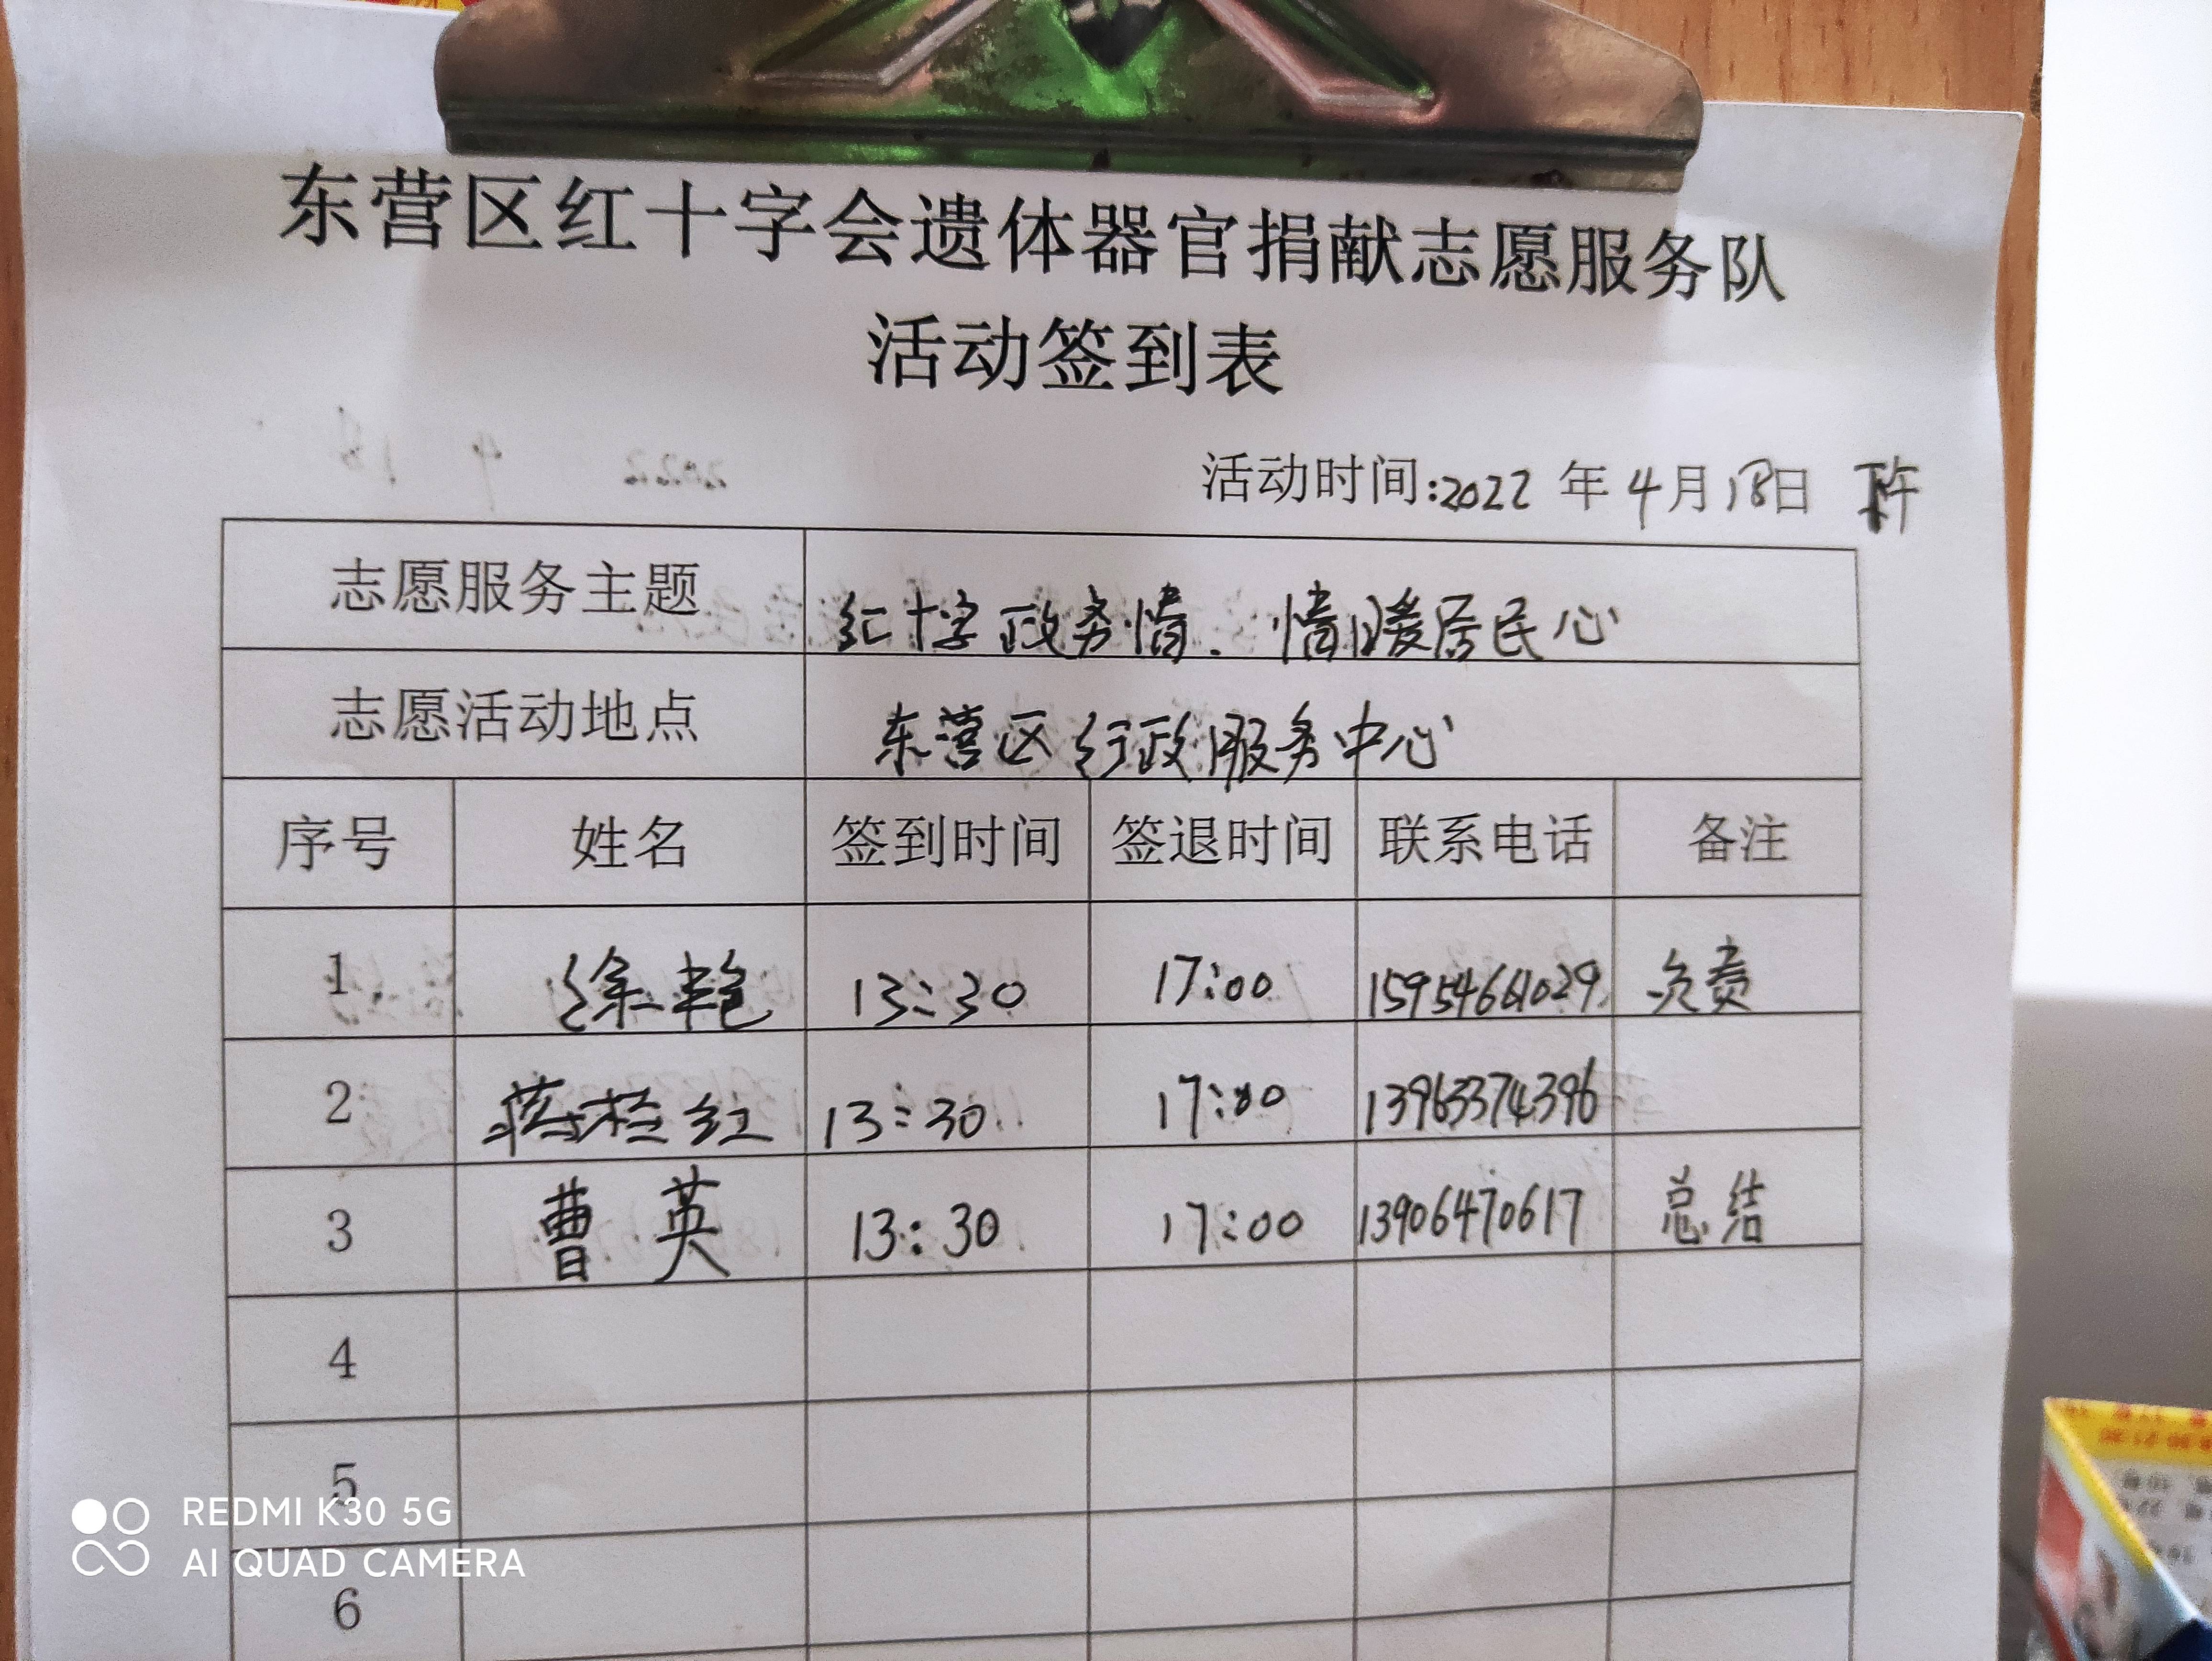 东营区红十字会遗体器官捐献志愿服务队
活动签到表
活动时间:2022 年 4月18日 下午
志愿服务主题 红十字政务情、情暖居民心
志愿活动地点 东营区行政服务中心
序号 姓名 签到时间 签退时间 联系电话 备注
1 徐艳 13:30 17:00 15954661029 负责
2 蒋桂红 13:30 17:00 13963374396
3 曹英 13:30 17:00 13906470617 总结
4
5
6
REDMI K30 5G
AI QUAD CAMERA